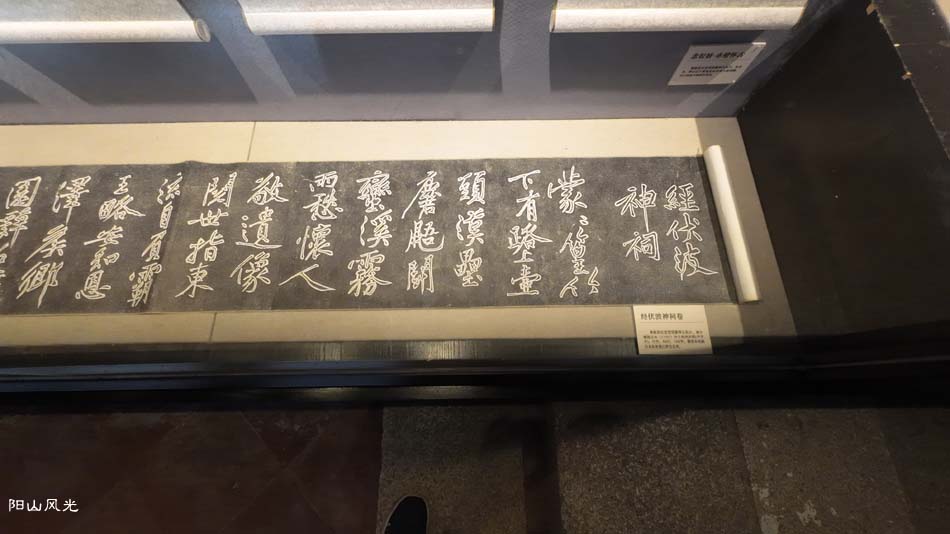 經伏波
神祠
蒙〻篁竹
下有路上壺
頭漢壘
麏鼯鬭
蠻溪霧
雨愁懷人
敬遺像
閱世指東
流自負霸
王略安知恩
澤侯鄉
園辭
念奴娇·赤壁怀古
经伏波神祠卷
阳山风光